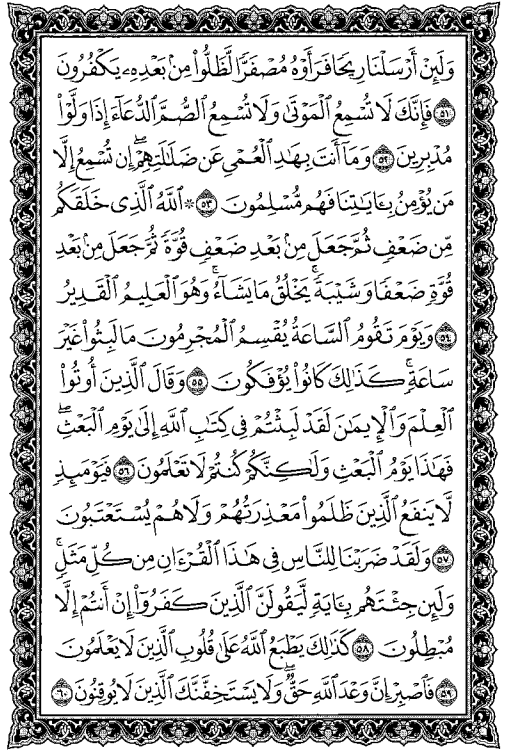 وَلَئِنْ أَرْسَلْنَا رِيحًا فَرَأَوْهُ مُصْفَرًّا لَّظَلُّوا۟ مِنۢ بَعْدِهِۦ يَكْفُرُونَ
۝٥١ فَإِنَّكَ لَا تُسْمِعُ ٱلْمَوْتَىٰ وَلَا تُسْمِعُ ٱلصُّمَّ ٱلدُّعَآءَ إِذَا وَلَّوْا۟
مُدْبِرِينَ ۝٥٢ وَمَآ أَنتَ بِهَٰدِ ٱلْعُمْىِ عَن ضَلَٰلَتِهِمْ ۖ إِن تُسْمِعُ إِلَّا
مَن يُؤْمِنُ بِـَٔايَٰتِنَا فَهُم مُّسْلِمُونَ ۝٥٣ ۞ ٱللَّهُ ٱلَّذِى خَلَقَكُم
مِّن ضَعْفٍ ثُمَّ جَعَلَ مِنۢ بَعْدِ ضَعْفٍ قُوَّةً ثُمَّ جَعَلَ مِنۢ بَعْدِ
قُوَّةٍ ضَعْفًا وَشَيْبَةً ۚ يَخْلُقُ مَا يَشَآءُ ۖ وَهُوَ ٱلْعَلِيمُ ٱلْقَدِيرُ
۝٥٤ وَيَوْمَ تَقُومُ ٱلسَّاعَةُ يُقْسِمُ ٱلْمُجْرِمُونَ مَا لَبِثُوا۟ غَيْرَ
سَاعَةٍ ۚ كَذَٰلِكَ كَانُوا۟ يُؤْفَكُونَ ۝٥٥ وَقَالَ ٱلَّذِينَ أُوتُوا۟
ٱلْعِلْمَ وَٱلْإِيمَٰنَ لَقَدْ لَبِثْتُمْ فِى كِتَٰبِ ٱللَّهِ إِلَىٰ يَوْمِ ٱلْبَعْثِ ۖ
فَهَٰذَا يَوْمُ ٱلْبَعْثِ وَلَٰكِنَّكُمْ كُنتُمْ لَا تَعْلَمُونَ ۝٥٦ فَيَوْمَئِذٍ
لَّا يَنفَعُ ٱلَّذِينَ ظَلَمُوا۟ مَعْذِرَتُهُمْ وَلَا هُمْ يُسْتَعْتَبُونَ
۝٥٧ وَلَقَدْ ضَرَبْنَا لِلنَّاسِ فِى هَٰذَا ٱلْقُرْءَانِ مِن كُلِّ مَثَلٍ ۚ
وَلَئِن جِئْتَهُم بِـَٔايَةٍ لَّيَقُولَنَّ ٱلَّذِينَ كَفَرُوٓا۟ إِنْ أَنتُمْ إِلَّا
مُبْطِلُونَ ۝٥٨ كَذَٰلِكَ يَطْبَعُ ٱللَّهُ عَلَىٰ قُلُوبِ ٱلَّذِينَ لَا يَعْلَمُونَ
۝٥٩ فَٱصْبِرْ إِنَّ وَعْدَ ٱللَّهِ حَقٌّ ۖ وَلَا يَسْتَخِفَّنَّكَ ٱلَّذِينَ لَا يُوقِنُونَ ۝٦٠